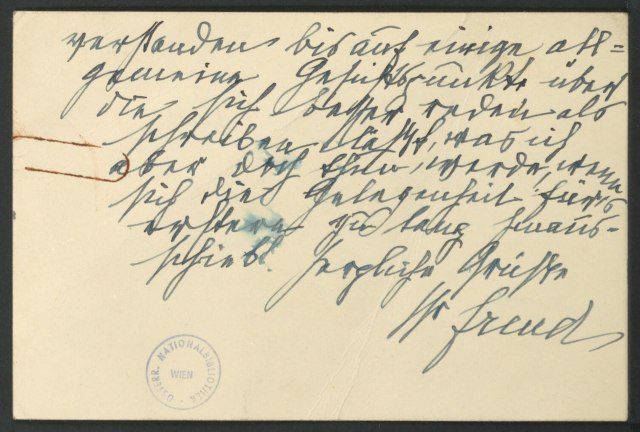 verstanden bis auf einige all=
gemeine Gesichtspunkte über
die sich besser reden als
schreiben läßt, was ich
aber doch thun werde, wenn
sich die Gelegenheit fürs
erstere zu lang hinaus-
schiebt. Herzliche Grüße
Ihr Freud
ÖSTERR. NATIONALBIBLIOTHEK
WIEN